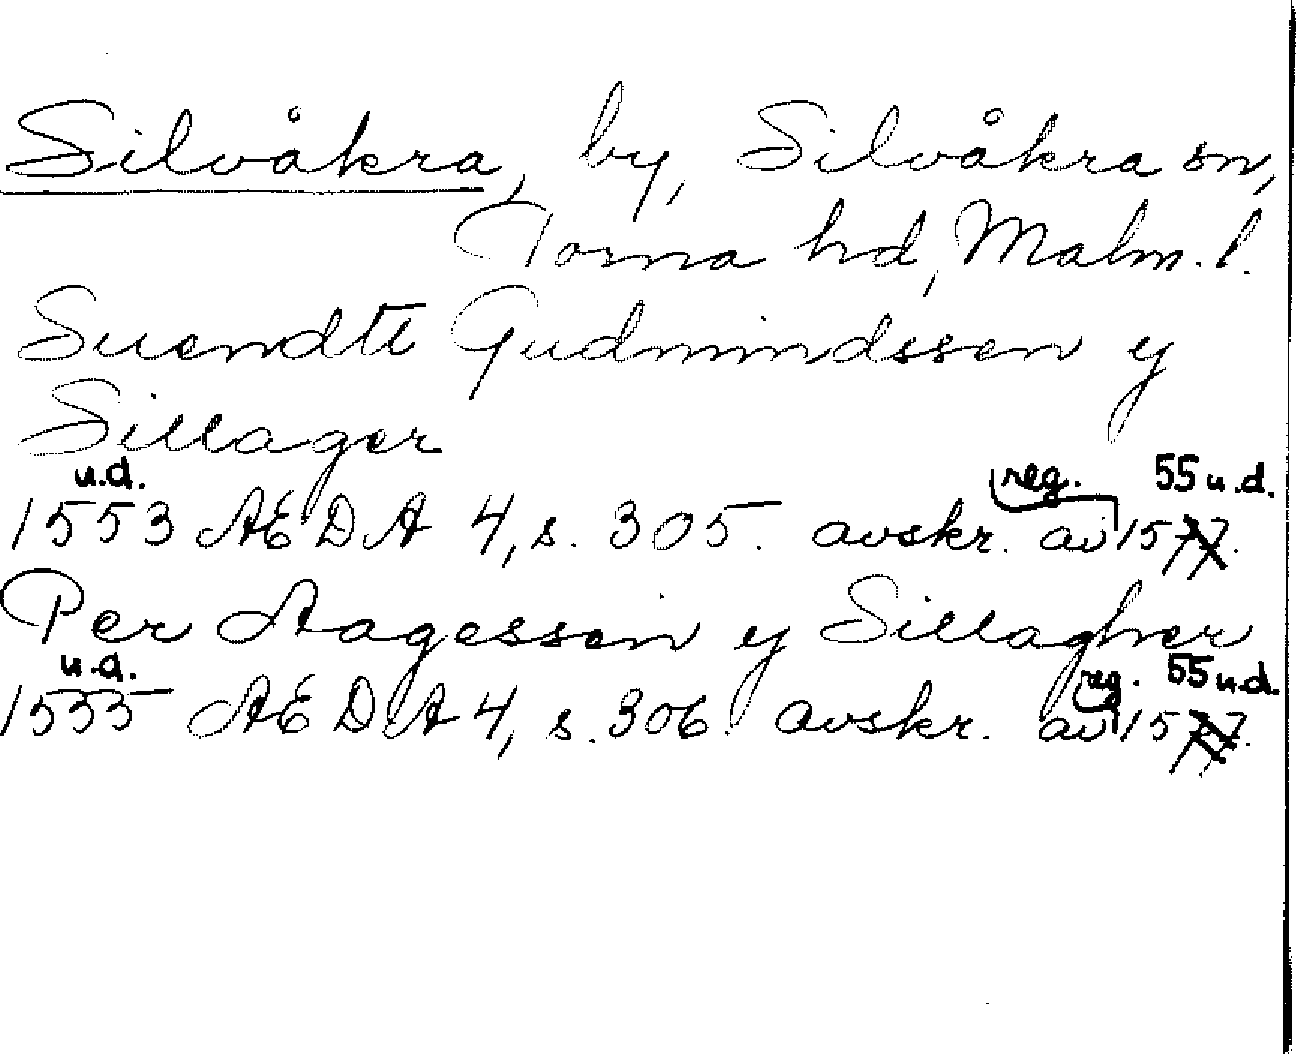 Silvåkra, by, Silvåkra sn,
Torna hd, Malm. l.
Suendte Gudmindssen y
Sillager
u.d. reg. 55 u.d.
1553 AEDA 4, s. 305. avskr. av 1577.
Per Aagessen y Sillagher
u.d. reg. 55 u.d.
1555 AEDA 4, s. 306. avskr. av 1577.